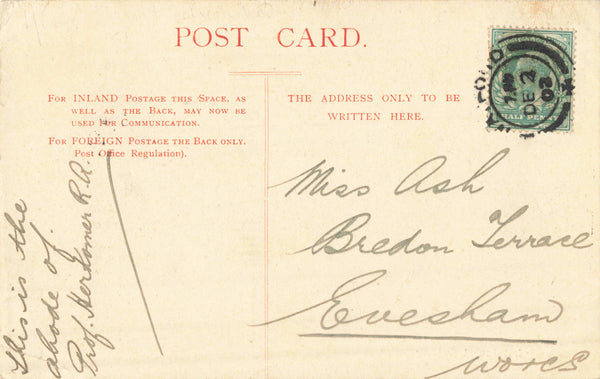 POST CARD.
FOR INLAND POSTAGE THIS SPACE, AS
WELL AS THE BACK, MAY NOW BE
USED FOR COMMUNICATION.
FOR FOREIGN POSTAGE THE BACK ONLY.
POST OFFICE REGULATION).
THE ADDRESS ONLY TO BE
WRITTEN HERE.
This is the
abode of
Prof. Herkomer R.A.
Miss Ash
Bredon Terrace
Evesham
Worcs
DE 2
HALF PENNY